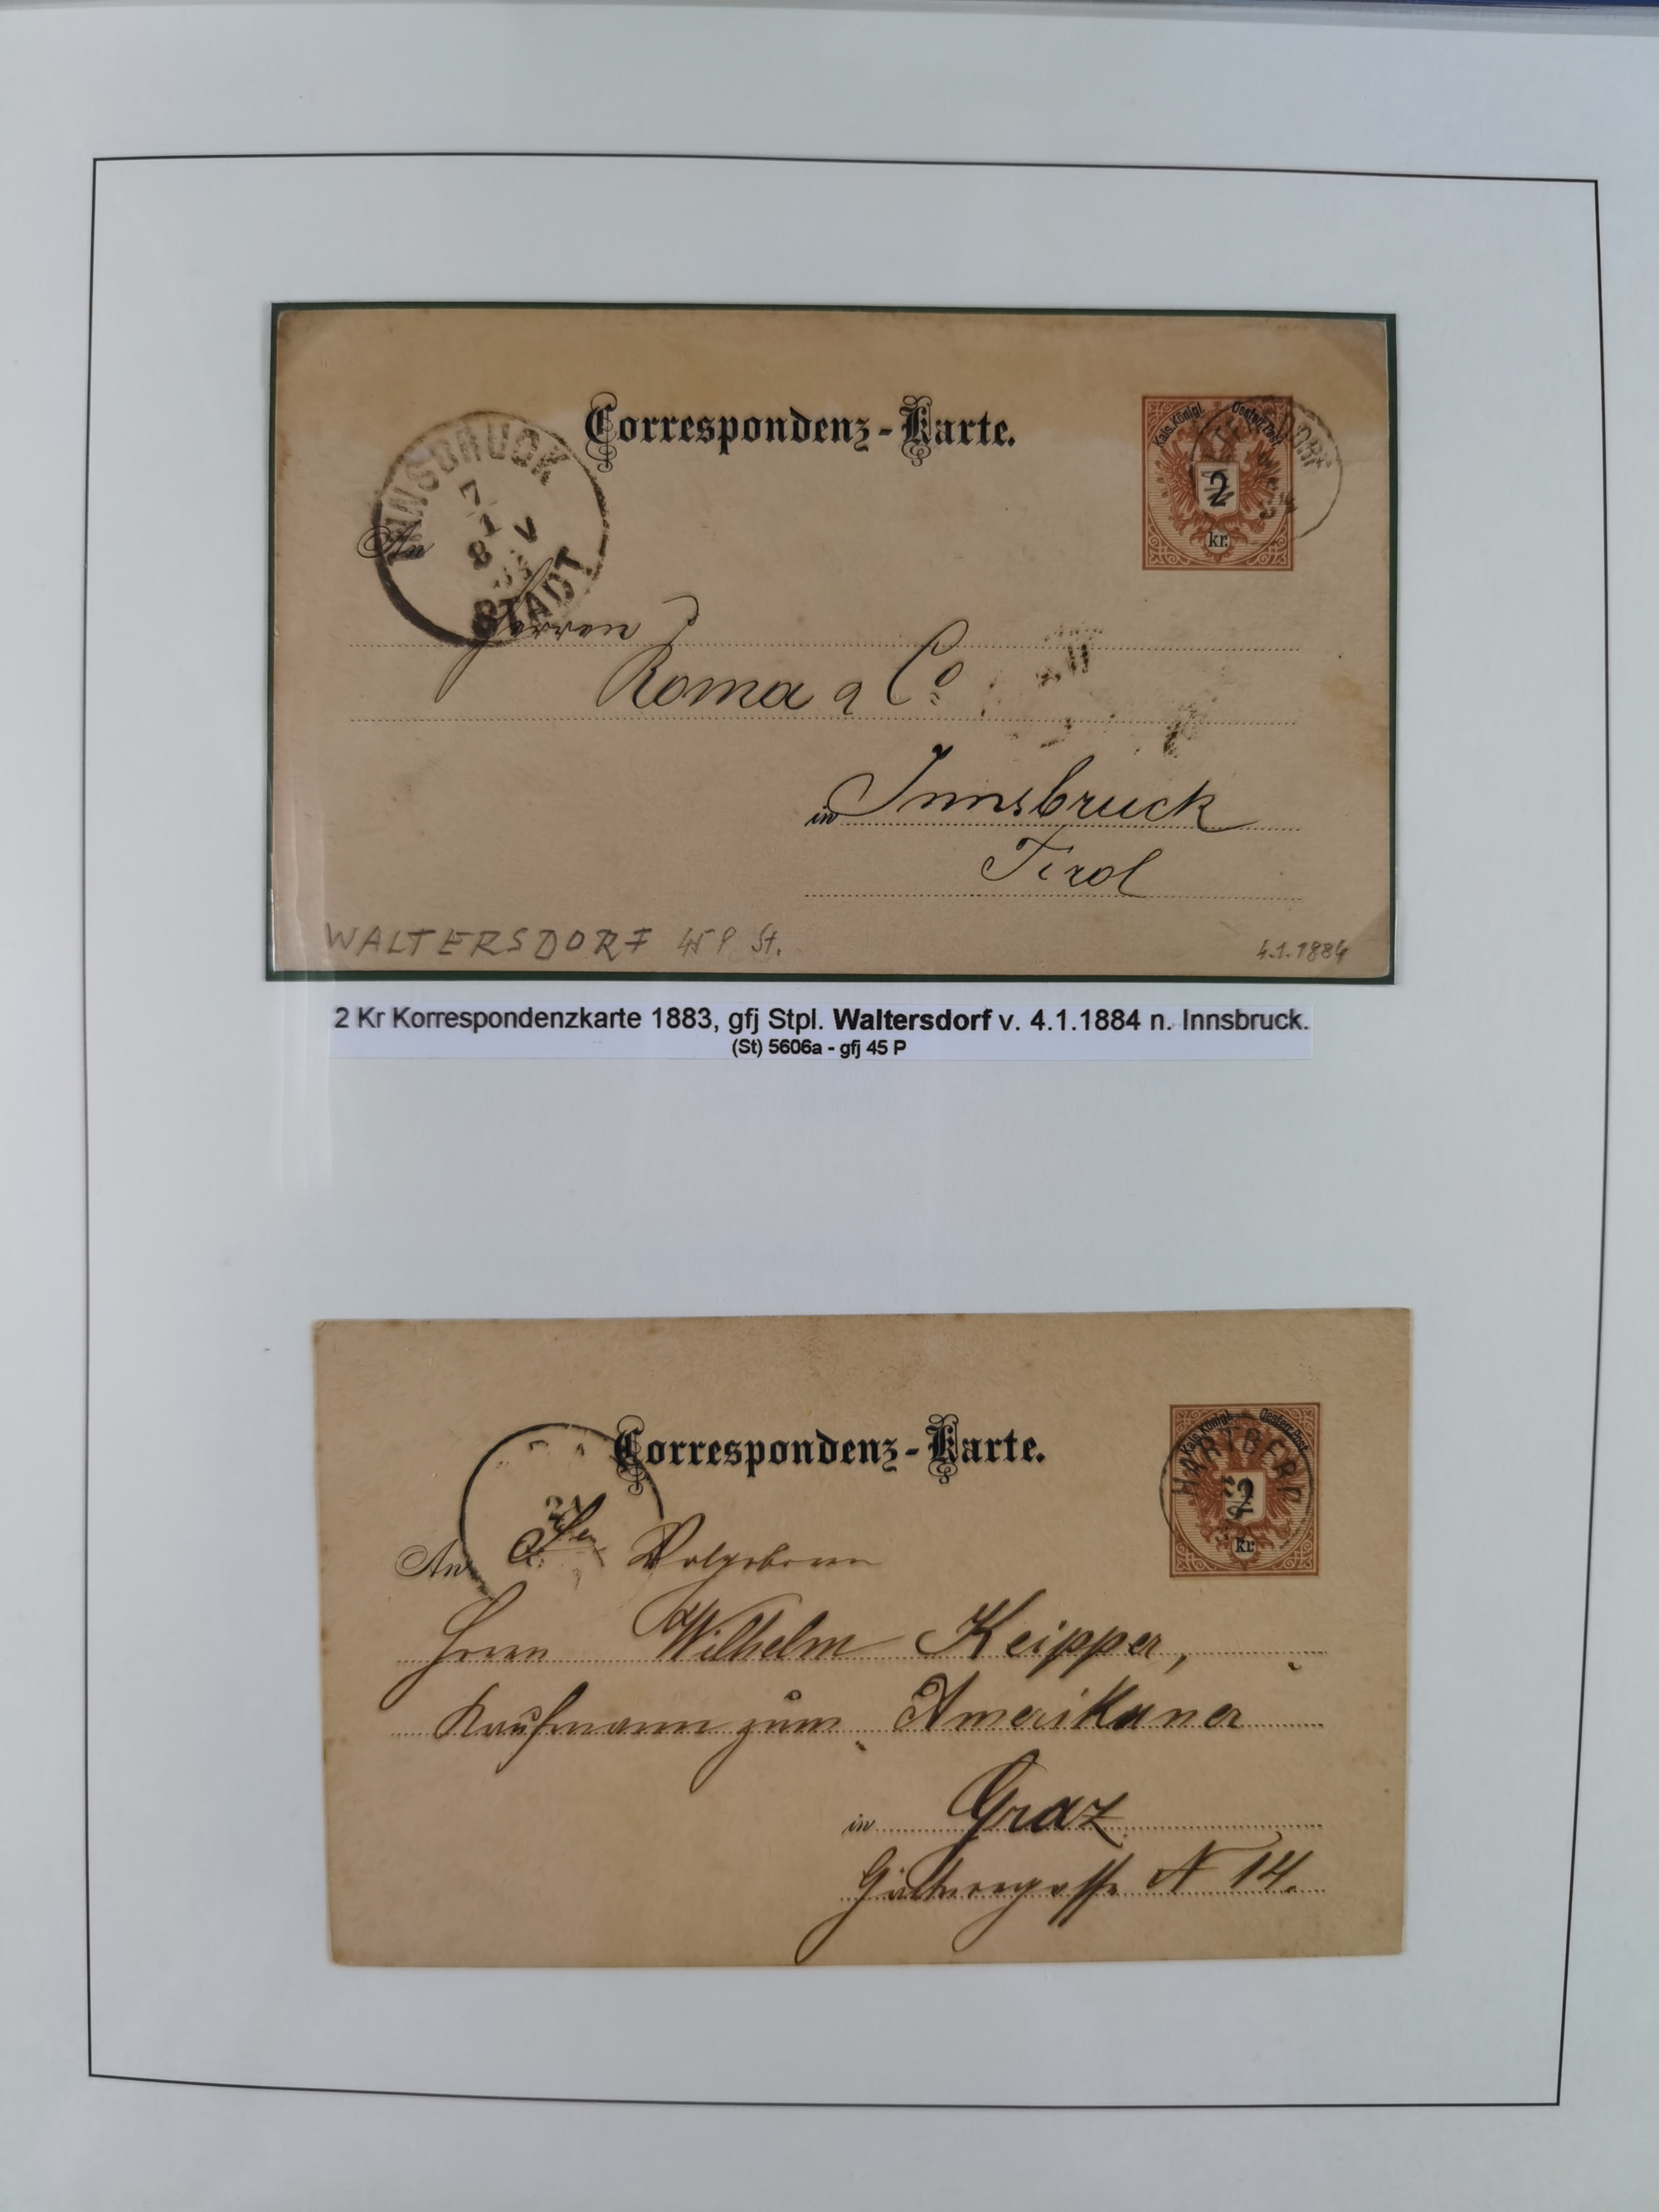 Correspondenz-Karte.
Kais. Königl. Oesterr. Post
2
kr.
INNSBRUCK
7
1
8 V
STADT
An
Herren
Roma & Co
in Innsbruck
Tirol
WALTERSDORF 45 P St.
4.1.1884
2 Kr Korrespondenzkarte 1883, gfj Stpl. Waltersdorf v. 4.1.1884 n. Innsbruck.
(St) 5606a - gfj 45 P
Correspondenz-Karte.
Kais. Königl. Oesterr. Post
HARTBERG
2
kr.
An
Herrn Wilhelm Keipper,
Kaufmann zum Amerikaner
in Graz
N 14.